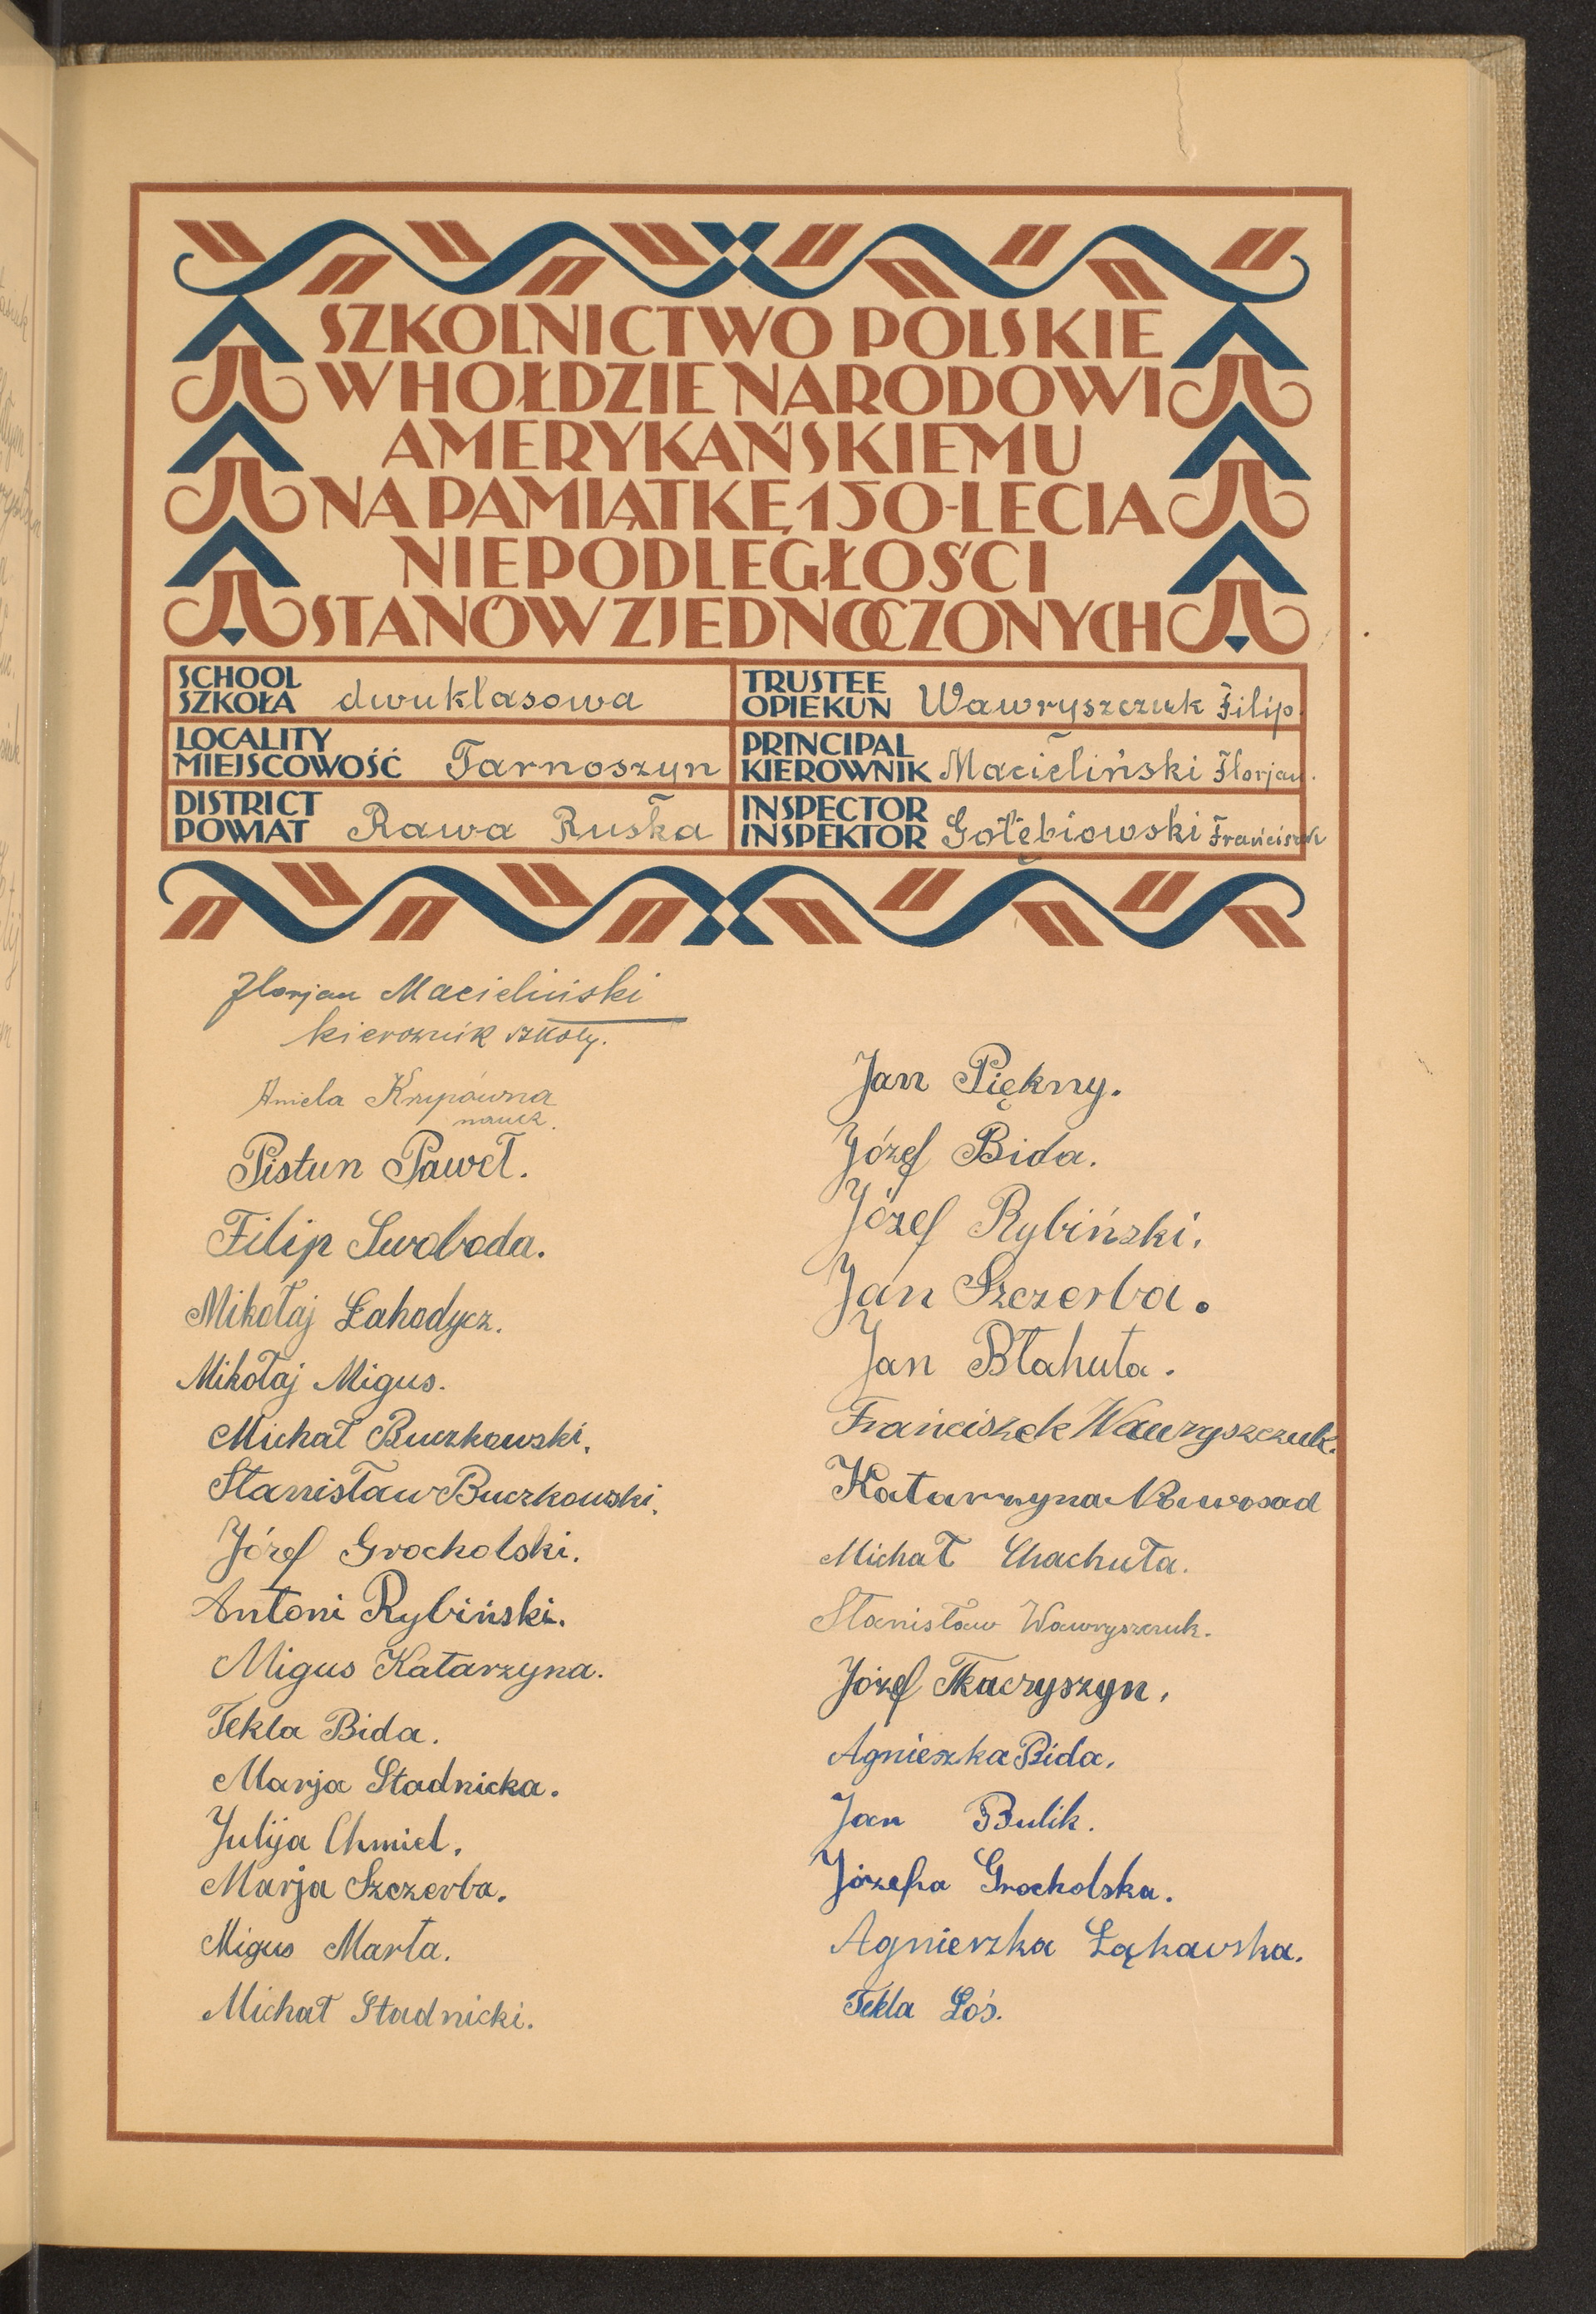 SZKOLNICTWO POLSKIE
W HOŁDZIE NARODOWI
AMERYKAŃSKIEMU
NA PAMIĄTKĘ 150-LECIA
NIEPODLEGŁOŚCI
STANÓW ZJEDNOCZONYCH
SCHOOL
SZKOŁA dwuklasowa
TRUSTEE
OPIEKUN Wawryszczuk Filip.
LOCALITY
MIEJSCOWOŚĆ Tarnoszyn
PRINCIPAL
KIEROWNIK Macieliński Florjan.
DISTRICT
POWIAT Rawa Ruska
INSPECTOR
INSPEKTOR Gołębiowski Franciszek
Florjan Macieliński
kierownik szkoły.
Aniela Krypówna
naucz.
Pistun Paweł.
Filip Swoboda.
Mikołaj Łahodycz.
Mikołaj Migus.
Michał Buczkowski.
Stanisław Buczkowski.
Józef Grocholski.
Antoni Rybiński.
Migus Katarzyna.
Tekla Bida.
Marja Stadnicka.
Julija Chmiel.
Marja Szczerba.
Migus Marta.
Michał Stadnicki.
Jan Piękny.
Józef Bida.
Józef Rybiński.
Jan Szczerba.
Jan Błahuta.
Franciszek Wawryszczuk.
Katarzyna Nowosad
Michał Chachuła.
Stanisław Wawryszczuk.
Józef Tkaczyszyn.
Agnieszka Bida.
Jan Bulik.
Józefa Grocholska.
Agnieszka Łąkawska.
Tekla Łoś.